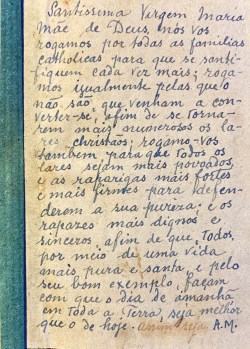 Santissima Virgem Maria
Mãe de Deus, nós vos
rogamos por todas as familias
catholicas para que se santi-
fiquem cada vez mais; roga-
mos igualmente pelas que o
não são, que venham a con-
verter-se, afim de se torna-
rem mais numerosos os la-
res christãos; rogamo-vos
tambem para que todos os
lares sejam mais povoados,
e as raparigas mais fortes
e mais firmes para defen-
derem a sua pureza; e os
rapazes mais dignos e
sinceros, afim de que, todos,
por meio de uma vida
mais pura e santa, e pelo
seu bom exemplo, façam
com que o dia de amanhã
em toda a Terra, seja melhor
que o de hoje. Assim seja A.M.